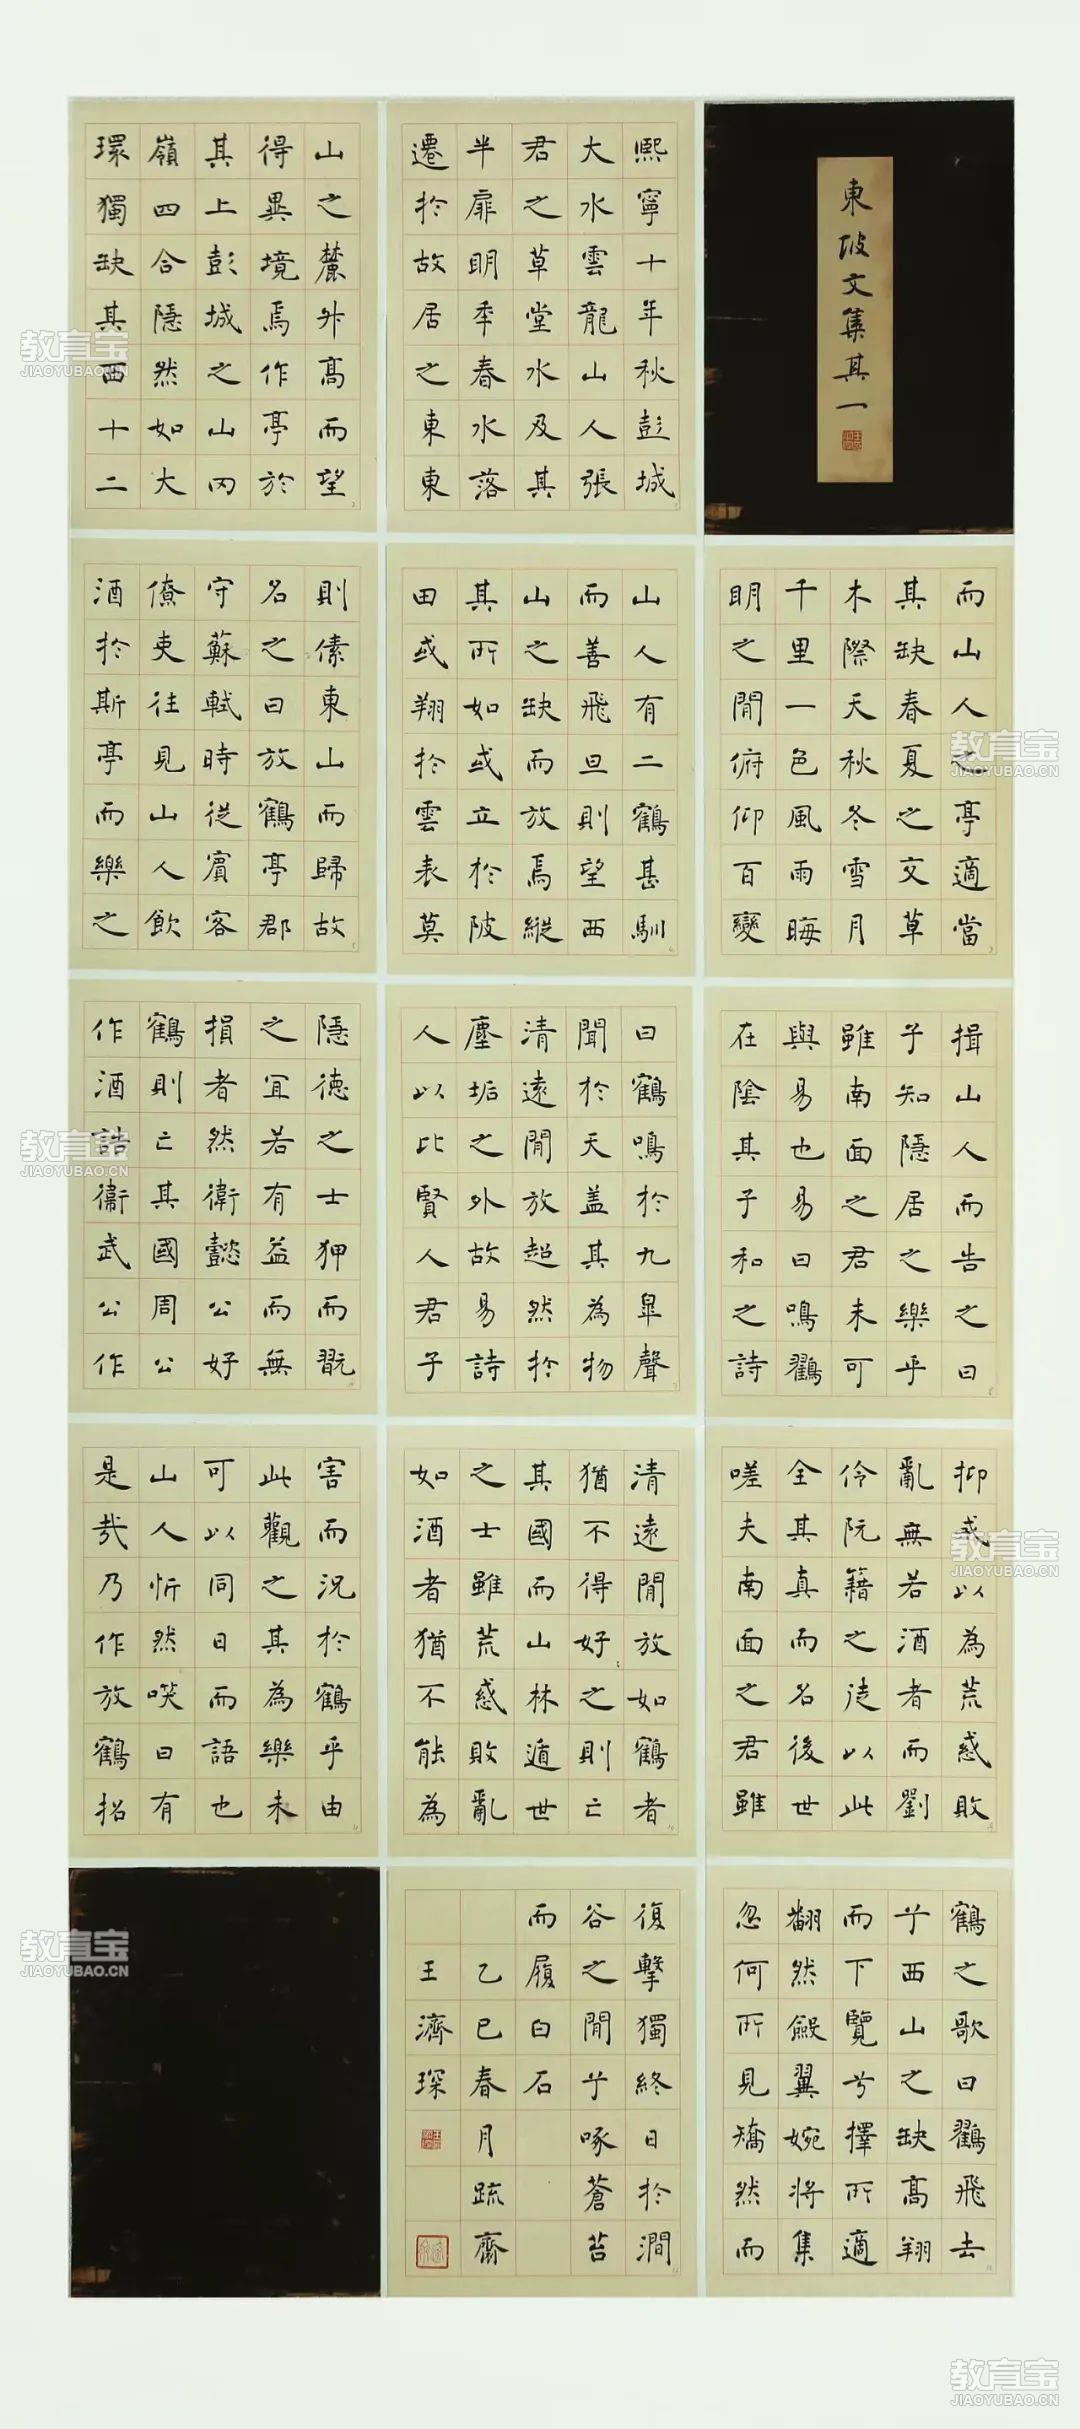 東坡文集其一
熙寧十年秋彭城
大水雲龍山人張
君之草堂水及其
半扉明季春水落
遷於故居之東東
山之麓升高而望
得異境焉作亭於
其上彭城之山岡
嶺四合隱然如大
環獨缺其西十二
而山人之亭適當
其缺春夏之交草
木際天秋冬雪月
千里一色風雨晦
明之閒俯仰百變
山人有二鶴甚馴
而善飛旦則望西
山之缺而放焉縱
其所如或立於陂
田或翔於雲表莫
則傃東山而歸故
名之曰放鶴亭郡
守蘇軾時從賓客
僚吏往見山人飲
酒於斯亭而樂之
揖山人而告之曰
子知隱居之樂乎
雖南面之君未可
與易也易曰鳴鸖
在陰其子和之詩
曰鶴鳴於九皐聲
聞於天蓋其為物
清遠閒放超然於
塵垢之外故易詩
人以比賢人君子
隱德之士狎而翫
之宜若有益而無
損者然衛懿公好
鶴則亡其國周公
作酒誥衛武公作
抑戒以為荒惑敗
亂無若酒者而劉
伶阮籍之徒以此
全其真而名後世
嗟夫南面之君雖
清遠閒放如鶴者
猶不得好之則亡
其國而山林遁世
之士雖荒惑敗亂
如酒者猶不能為
害而況於鶴乎由
此觀之其為樂未
可以同日而語也
山人忻然笑曰有
是哉乃作放鶴招
鶴之歌曰鸖飛去
兮西山之缺高翔
而下覽兮擇所適
翻然斂翼婉將集
忽何所見矯然而
復擊獨終日於澗
谷之閒兮啄蒼苔
而履白石
乙巳春月疏齋
王濟琛
教育宝
JIAOYUBAO.CN
教育宝
JIAOYUBAO.CN
教育宝
JIAOYUBAO.CN
教育宝
JIAOYUBAO.CN
教育宝
JIAOYUBAO.CN
教育宝
JIAOYUBAO.CN